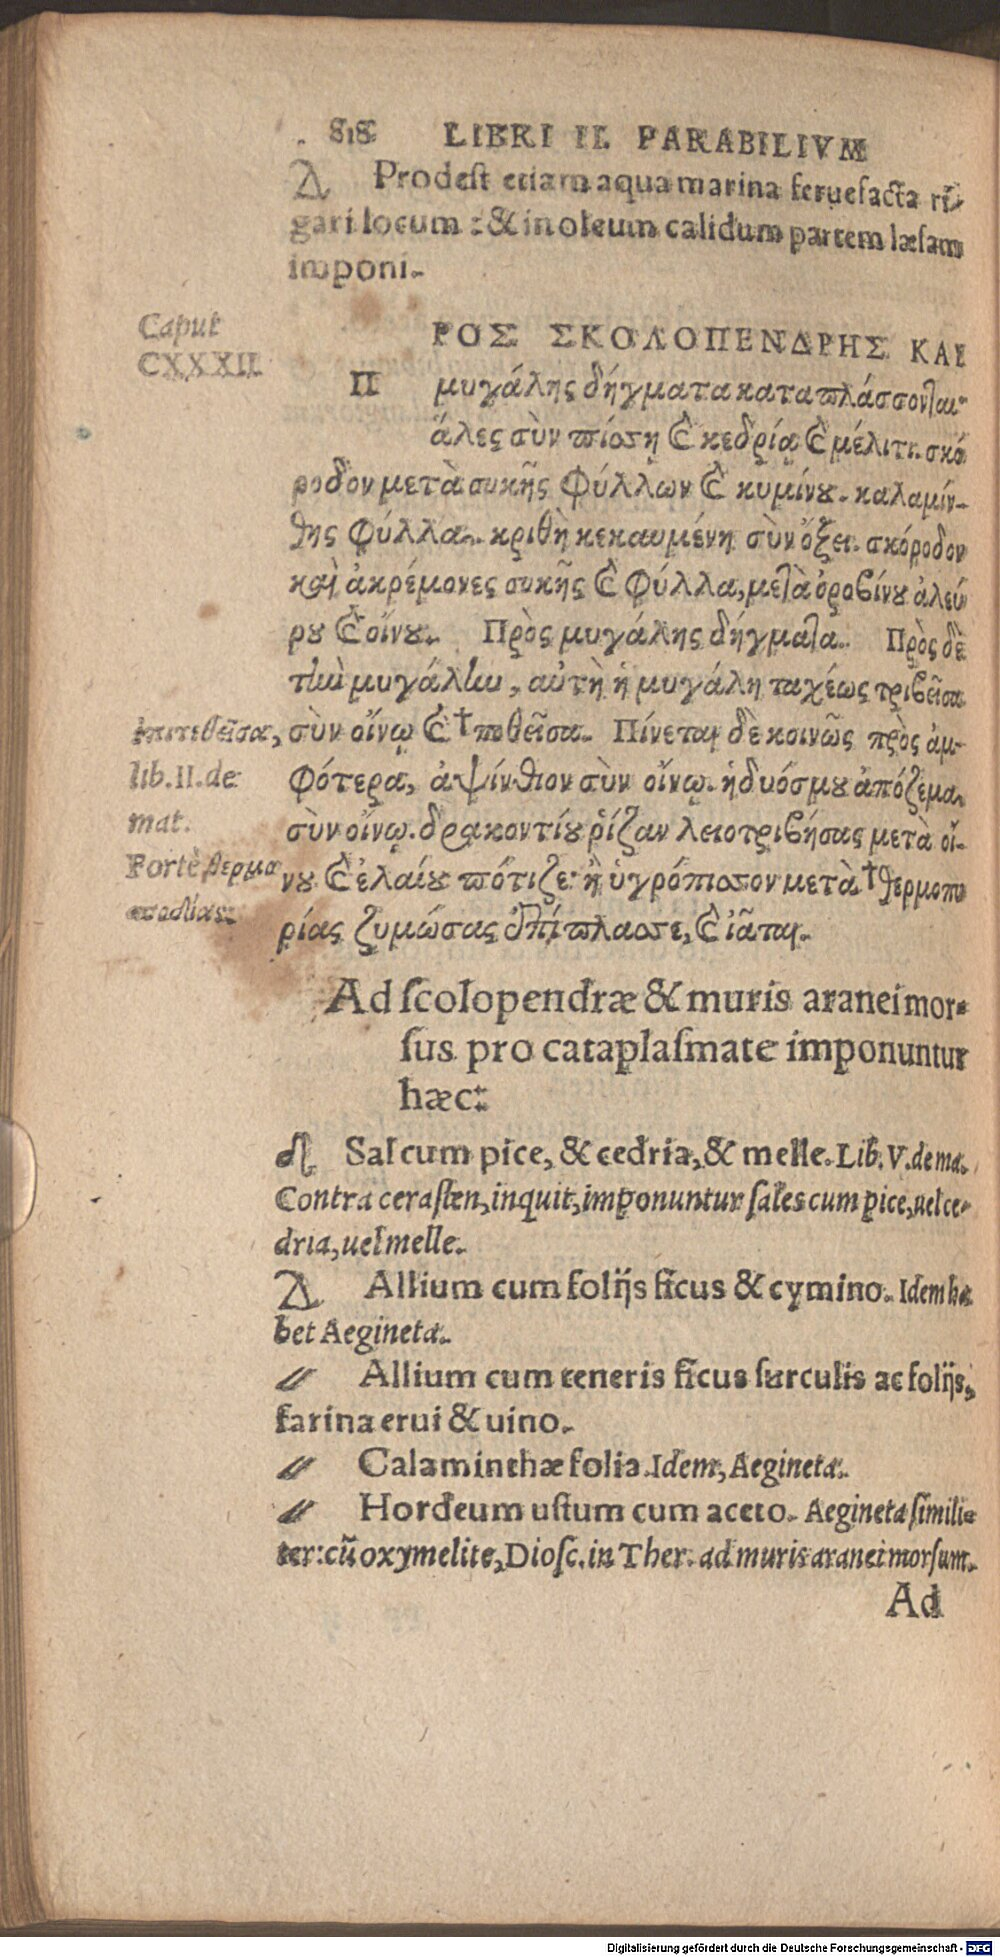 818 LIBRI II. PARABILIVM
Prodest etiam aqua marina feruefacta ri-
gari locum : & in oleum calidum partem læsam
imponi.
Caput
CXXXII
ΠΡΟΣ ΣΚΟΛΟΠΕΝΔΡΗΣ ΚΑΙ
μυγάλης δήγματα καταπλάσσονται·
ἅλες σὺν πίσση καὶ κεδρίᾳ καὶ μέλιτι. σκό
ροδον μετὰ συκῆς φύλλων καὶ κυμίνου. καλαμίν-
θης φύλλα. κριθὴ κεκαυμένη σὺν ὄξει. σκόροδον
καὶ ἀκρέμονες συκῆς καὶ φύλλα, μετὰ ὀροβίνου ἀλεύ
ρου καὶ οἴνου. Πρὸς μυγάλης δήγματα. Πρὸς δὲ
τὴν μυγάλην, αὐτὴ ἡ μυγάλη ταχέως τριβεῖσα
ἐπιτεθεῖσα, σὺν οἴνῳ καὶ †ποθεῖσα. Πίνεται δὲ κοινῶς πρὸς ἀμ-
lib.II.de φότερα, ἀψίνθιον σὺν οἴνῳ. ἡδυόσμου ἀπόζεμα
mat. σὺν οἴνῳ. δρακοντίου ῥίζαν λειοτριβήσας μετὰ οἴ-
Fortè θερμο νου καὶ ἐλαίου πότιζε· ἢ ὑγρόπισσον μετὰ †θερμοπυ
σποδίας. ρίας ζυμώσας ἐπίπλασσε, καὶ ἰᾶται.
Ad scolopendræ & muris aranei mor-
sus pro cataplasmate imponuntur
hæc:
Sal cum pice, & cedria, & melle. Lib. V. de ma.
Contra cerasten, inquit, imponuntur sales cum pice, uel ce-
dria, uel melle.
Allium cum folijs ficus & cymino. Idem ha
bet Aegineta.
〃 Allium cum teneris ficus surculis ac folijs,
farina erui & uino.
〃 Calaminthæ folia. Idem, Aegineta.
〃 Hordeum ustum cum aceto. Aegineta simili-
ter: cũ oxymelite, Diosc. in Ther. ad muris aranei morsum.
Ad
Digitalisierung gefördert durch die Deutsche Forschungsgemeinschaft - DFG